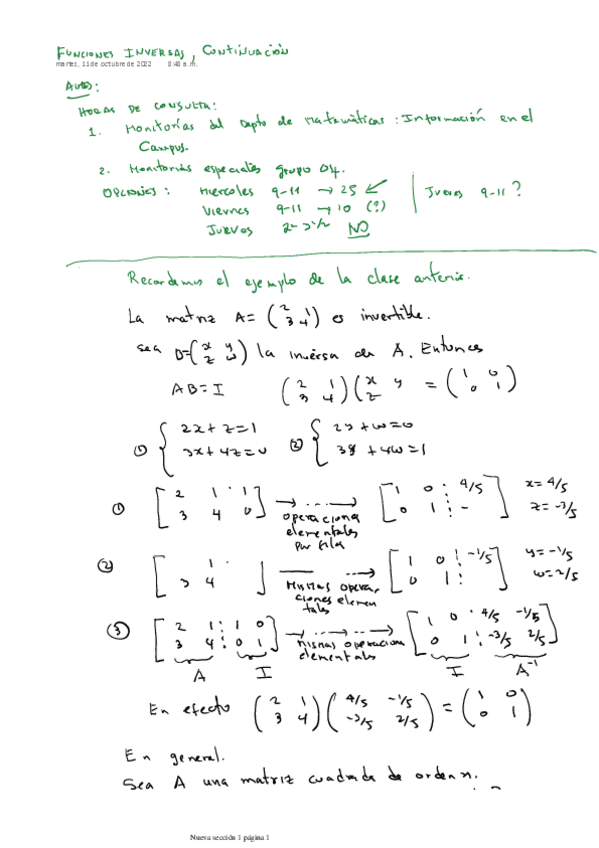 FUNCIONES INVERSAS, CONTINUACIÓN
martes, 11 de octubre de 2022 8:43 a. m.
AVISO:
HORAS DE CONSULTA:
1. Monitorías del Depto de Matemáticas: Información en el
Campus.
2. Monitorías especiales grupo 04.
OPCIONES: Miercoles 9-11 → 25 ✓ | Jueves 9-11?
Viernes 9-11 → 10 (?)
Jueves NO
Recordemos el ejemplo de la clase anterior.
La matriz A = (2 1; 3 4) es invertible.
Sea B = (x y; z w) la inversa de A. Entonces
AB = I (2 1; 3 4)(x y; z = (1 0; 0 1)
① { 2x + z = 1 ② { 2y + w = 0
3x + 4z = 0 3y + 4w = 1
① [2 1 : 1; 3 4 0] → ... → [1 0 : 4/5; 0 1 : -] x = 4/5
z = -3/5
operaciones
elementales
por filas
② [1 ; 3 4] → [1 0 : -1/5; 0 1 :] y = -1/5
w = 2/5
mismas opera-
ciones elemen
tales
③ [2 1 : 1 0; 3 4 : 0 1] → ... → [1 0 : 4/5 -1/5; 0 1 : -3/5 2/5]
mismas operaciones
elementales
A I I A⁻¹
En efecto (2 1; 3 4)(4/5 -1/5; -3/5 2/5) = (1 0; 0 1)
En general.
Sea A una matriz cuadrada de orden n.
Nueva sección 1 página 1